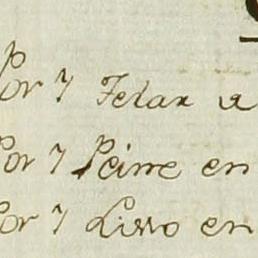 Por 7 Telax a
Por 7 Peine en
Por 7 Lizzo en